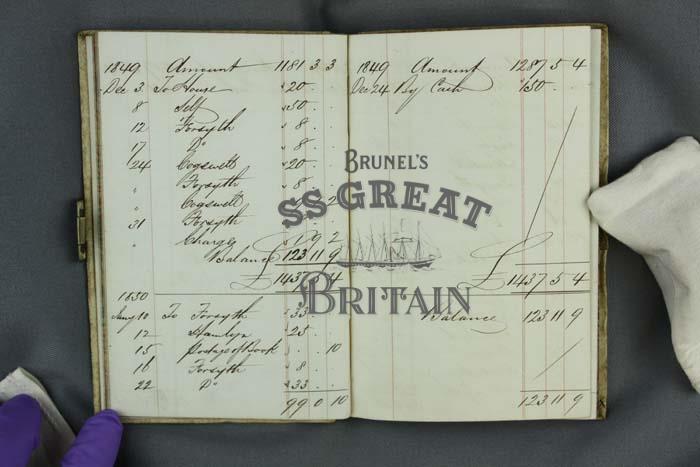 1849 Amount 1181 3 3
Dec 3 To House " 20 . .
8 Self " 50 . .
12 Forsyth " 8 . .
17 Do " 8 . .
24 Cogswell " 20 . .
" Forsyth " 8 . .
" Cogswell 2
31 Forsyth
" Charges 1 9 2
Balance 123 11 9
£ 1437 5 4
1850
Jany 10 To Forsyth " 33 . .
12 Hamlyn " 25 . .
15 Postage of Book " . . 10
16 Forsyth " 8 . .
22 Do " 33 . .
99 0 10
1849 Amount 1287 5 4
Dec 24 By Cash " 150 . .
£ 1437 5 4
Balance 123 11 9
123 11 9
BRUNEL'S
SS GREAT
BRITAIN